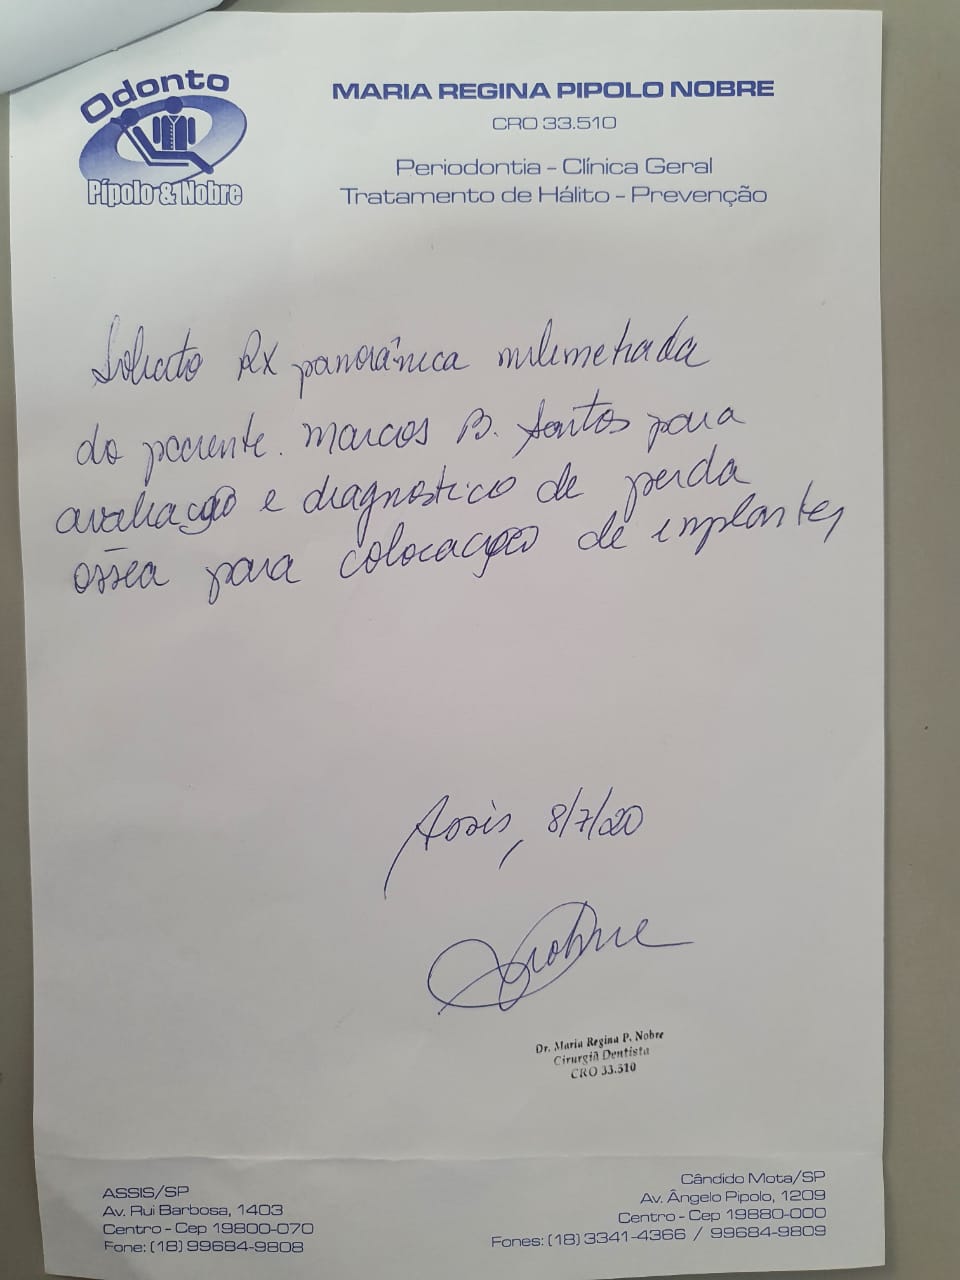 Odonto
Pípolo & Nobre
MARIA REGINA PIPOLO NOBRE
CRO 33.510
Periodontia - Clínica Geral
Tratamento de Hálito - Prevenção
Solicito RX panorâmica milimetrada
do paciente. Marcos B. Santos para
avaliação e diagnostico de perda
óssea para colocação de implantes
Assis, 8/7/20
Nobre
Dr. Maria Regina P. Nobre
Cirurgiã Dentista
CRO 33.510
ASSIS/SP
Av. Rui Barbosa, 1403
Centro - Cep 19800-070
Fone: (18) 99684-9808
Cândido Mota/SP
Av. Ângelo Pipolo, 1209
Centro - Cep 19880-000
Fones: (18) 3341-4366 / 99684-9809